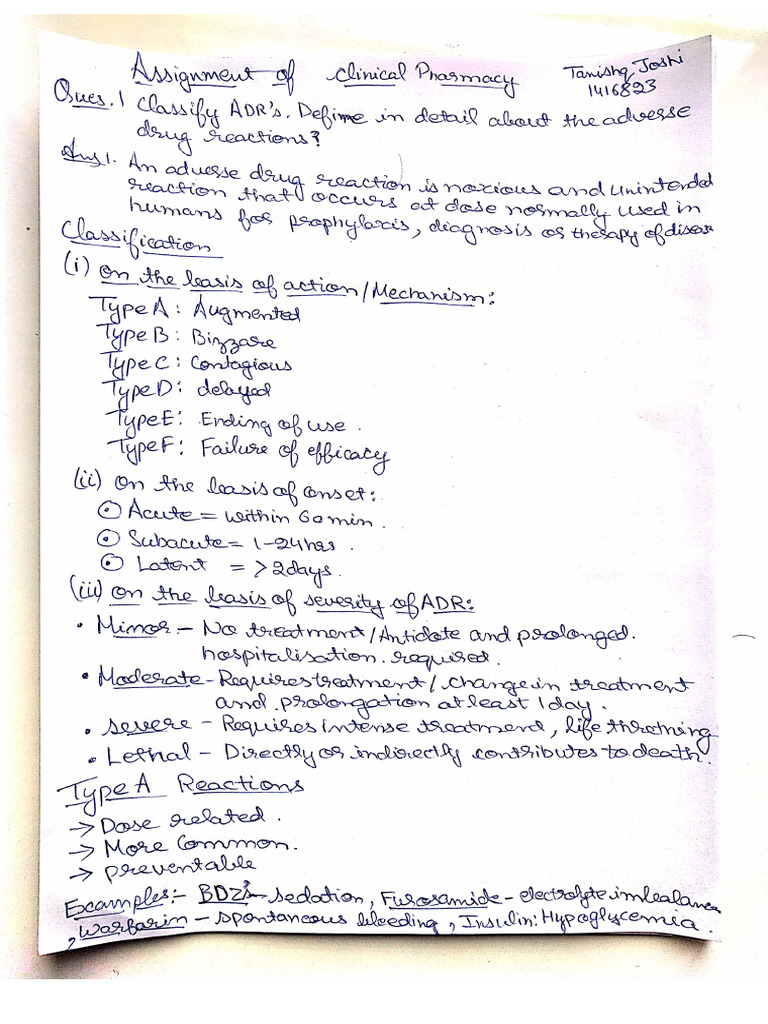 Assignment of Clinical Pharmacy
Tanishq Joshi
1416823
Ques.1 Classify ADR's. Define in detail about the adverse
drug reactions?
Ans1. An adverse drug reaction is noxious and unintended
reaction that occurs at dose normally used in
humans for prophylaxis, diagnosis or therapy of disease
Classification
(i) on the basis of action/Mechanism:
Type A: Augmented
Type B: Bizzare
Type C: Contagious
Type D: delayed
Type E: Ending of use.
Type F: Failure of efficacy
(ii) on the basis of onset:
⊙ Acute = within 60 min.
⊙ Subacute = 1-24hrs.
⊙ Latent = >2days.
(iii) on the basis of severity of ADR:
• Minor - No treatment/Antidote and prolonged.
hospitalisation. required.
• Moderate - Requires treatment/change in treatment
and prolongation at least 1 day.
• severe - Requires intense treatment, life thretning
• Lethal - Directly or indirectly contributes to death.
Type A Reactions
→ Dose related.
→ More Common.
→ preventable
Examples:- BDZ's- sedation, Furosamide - electrolyte imbalance
, warfarin - spontaneous bleeding, Insulin: Hypoglycemia.